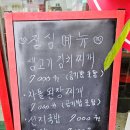 ♡ 점심 메뉴 ♡
생고기 김치찌개
9000원 (공기밥 포함)
차돌 된장찌개
9000원 (공기밥 포함)
선지국밥
9000원